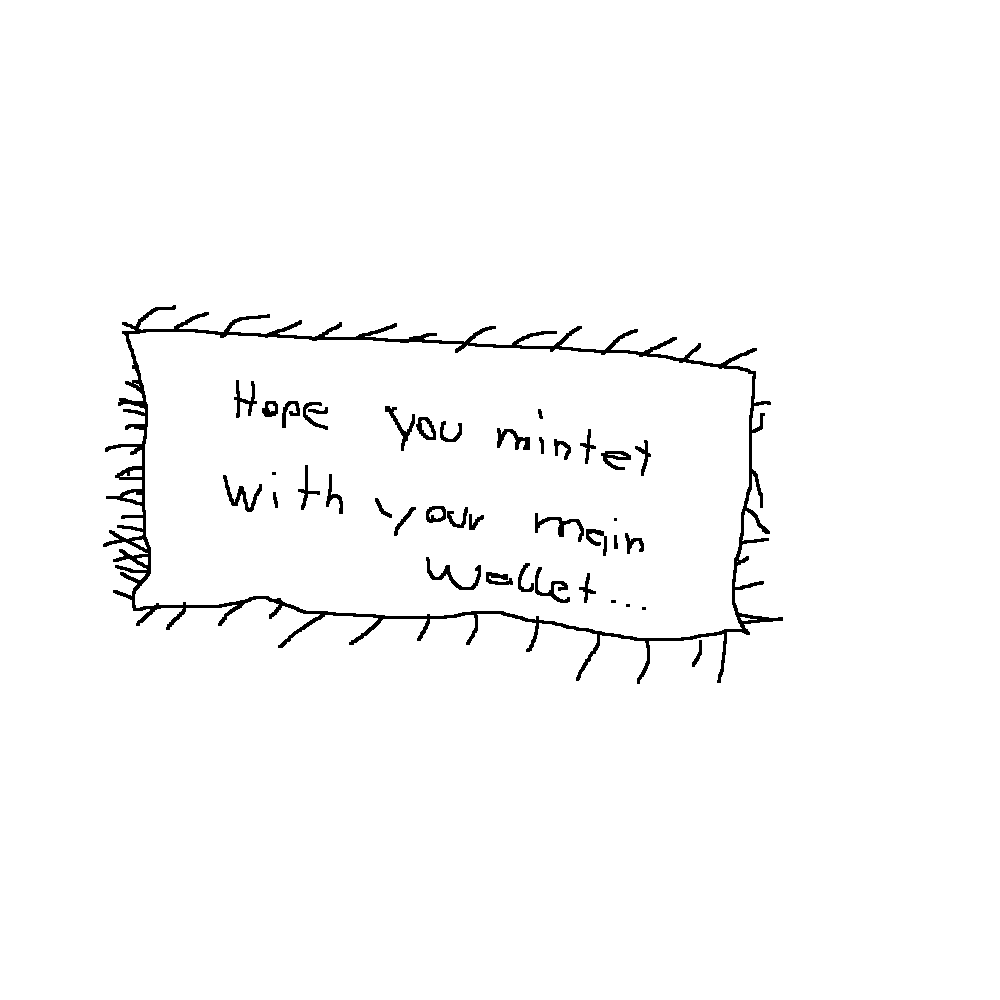 Hope you mintet
with your main
wallet...